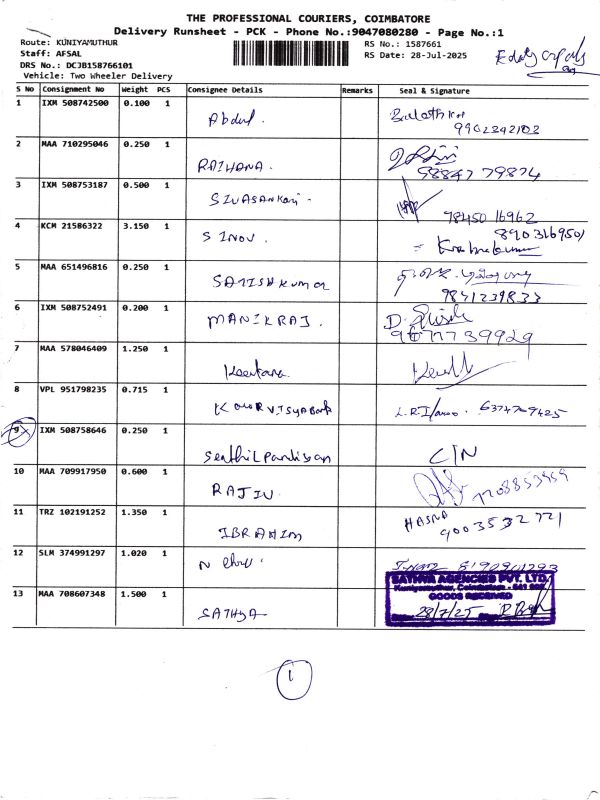 THE PROFESSIONAL COURIERS, COIMBATORE
Delivery Runsheet - PCK - Phone No.:9047080280 - Page No.:1
Route: KUNIYAMUTHUR
RS No.: 1587661
Staff: AFSAL
RS Date: 28-Jul-2025
DRS No.: DCJB158766101
Vehicle: Two Wheeler Delivery
S No Consignment No Weight PCS Consignee Details Remarks Seal & Signature
1 IXM 508742500 0.100 1 Abdul.
9902242102
2 MAA 710295046 0.250 1 RAIHANA.
98847 79874
3 IXM 508753187 0.500 1 SIVASANKARI-
78450 16962
4 KCM 21586322 3.150 1 S INOV.
8903169501
5 MAA 651496816 0.250 1 SATISHKUMAR
9841239833
6 IXM 508752491 0.200 1 MANIKRAJ.
9677739929
7 MAA 578046409 1.250 1 Keertana
8 VPL 951798235 0.715 1 KARUR VISYA Bank
9 IXM 508758646 0.250 1 Senthil Pandiyan
C/N
10 MAA 709917950 0.600 1 RAJIV.
7708853959
11 TRZ 102191252 1.350 1 IBRAHIM
HASNA
9003532721
12 SLM 374991297 1.020 1
13 MAA 708607348 1.500 1 SATHYA-
SATHYA AGENCIES PVT. LTD.
Kuniyamuthur, Coimbatore - 641 008
GOODS RECEIVED
28/7/25
1